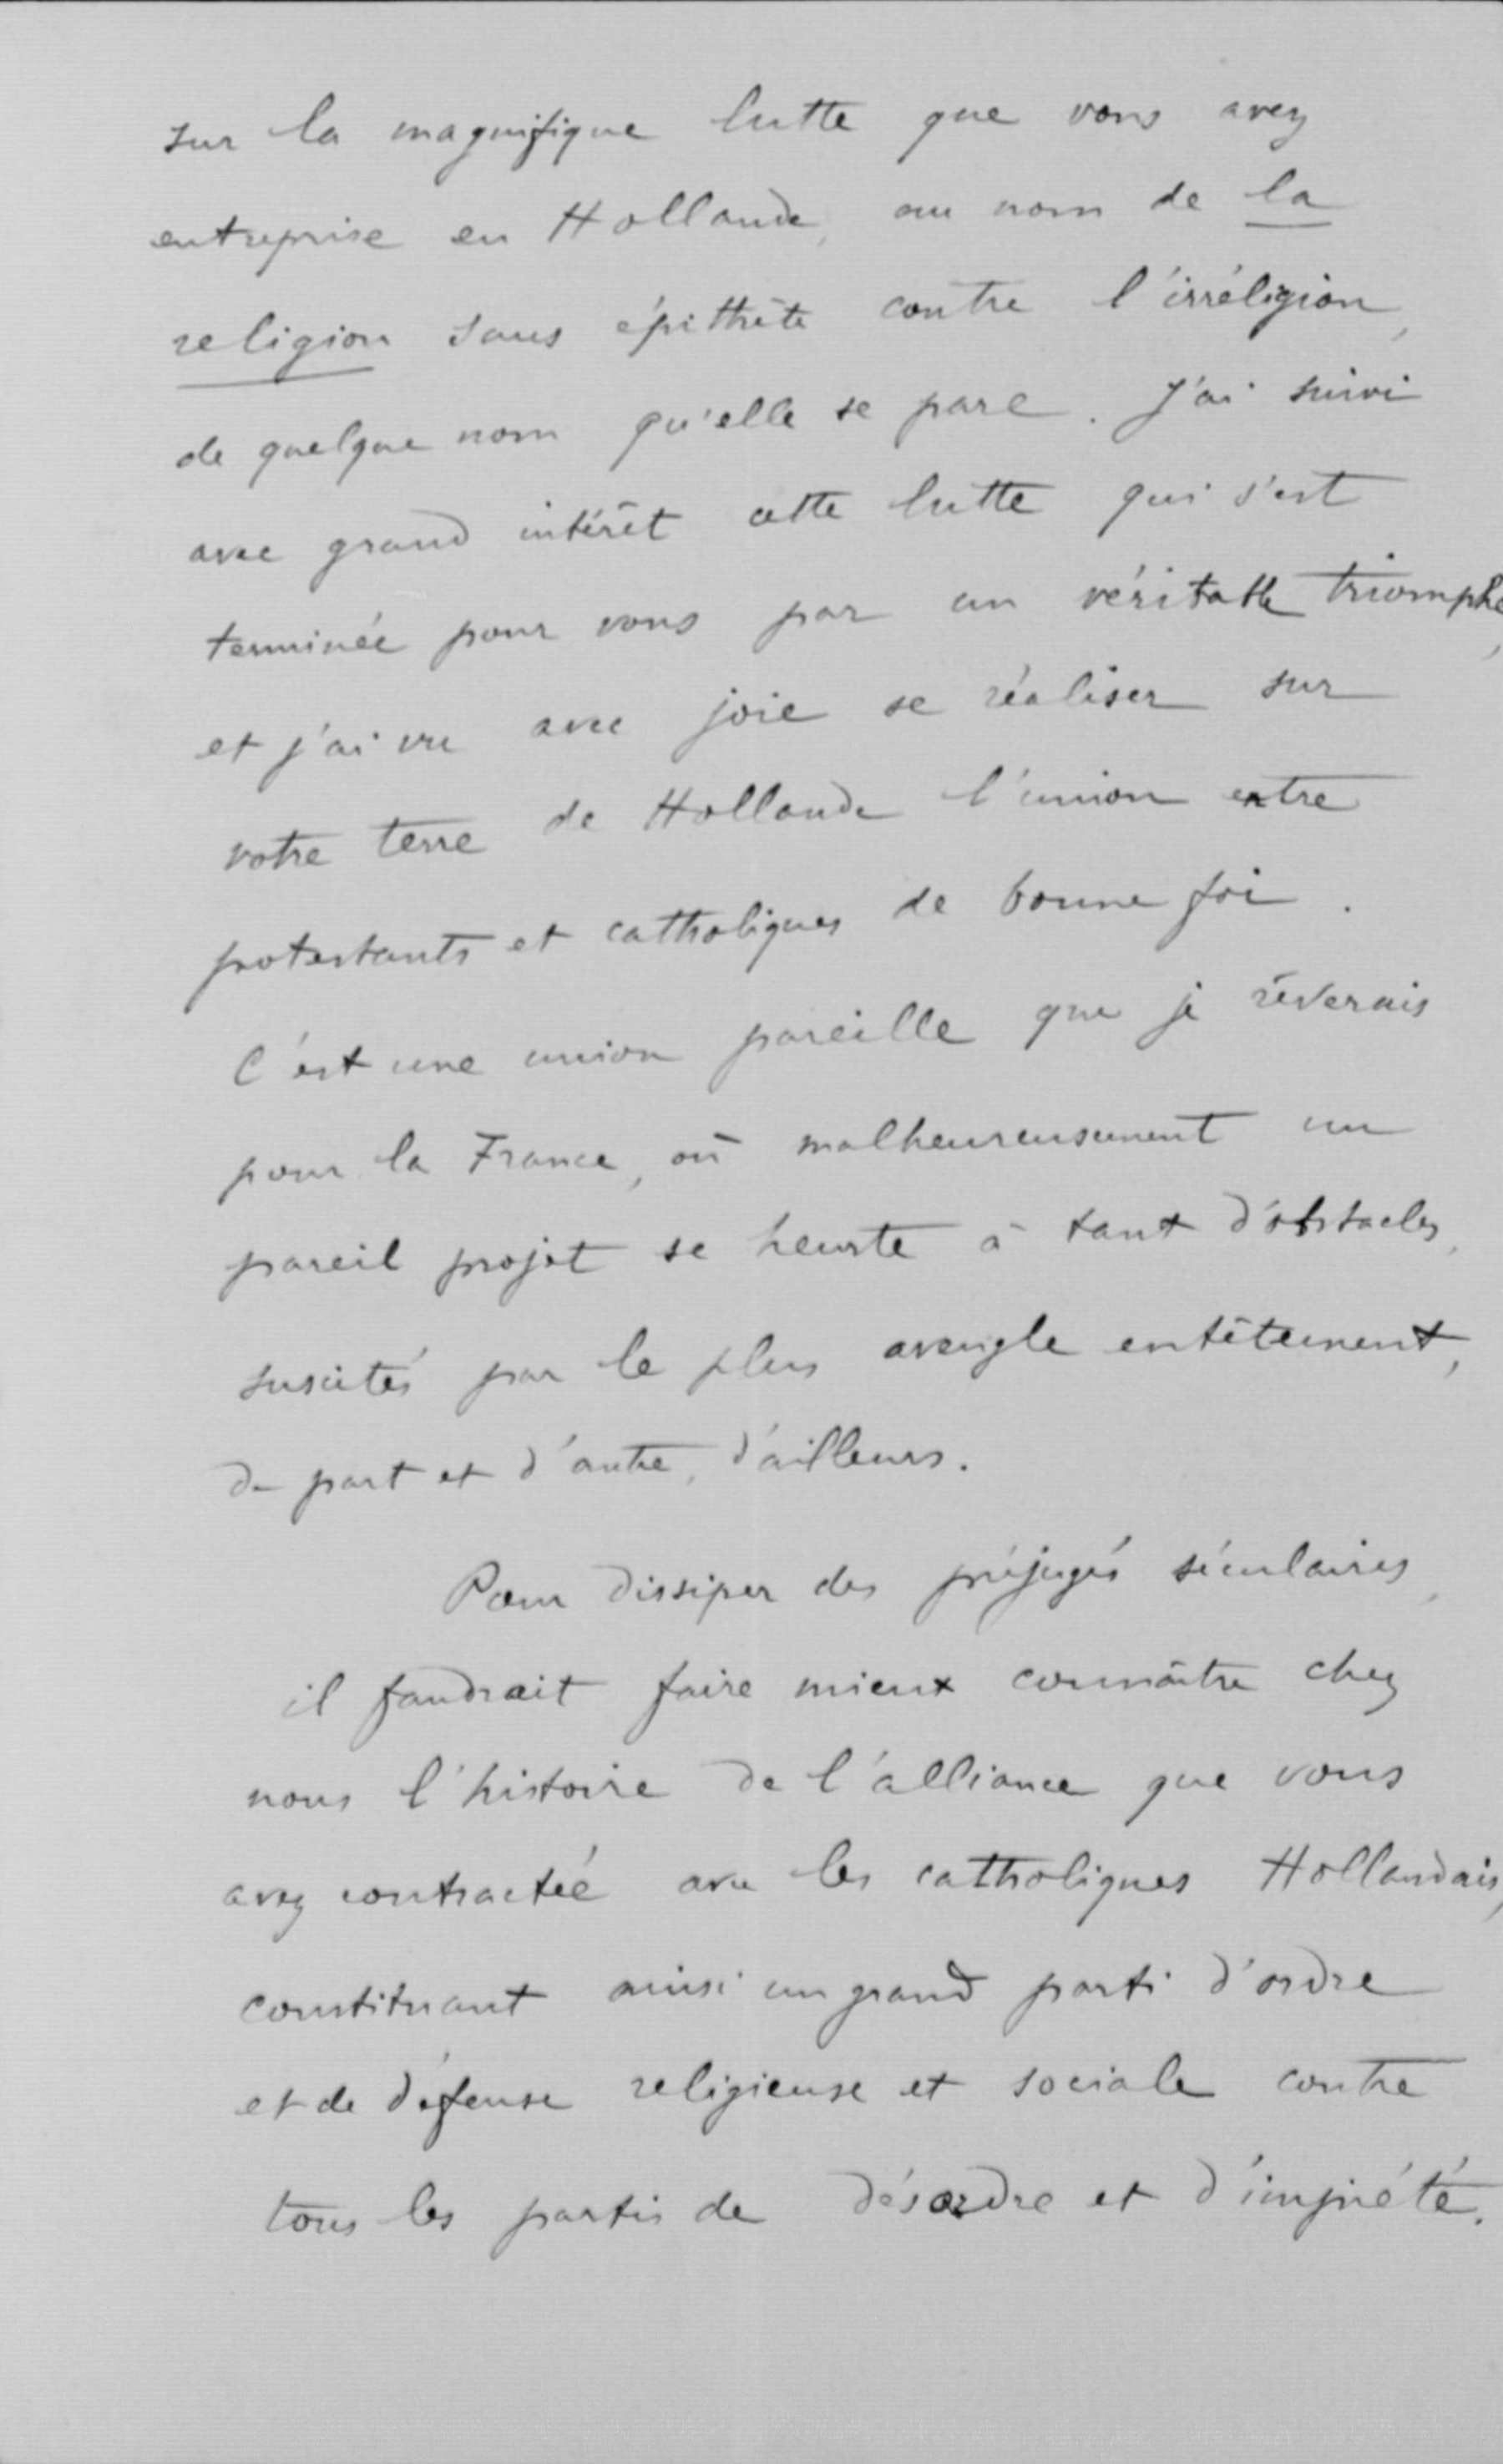 sur la magnifique lutte que vous avez
entreprise en Hollande, au nom de la
religion sans épithète contre l'irréligion,
de quelque nom qu'elle se pare. J'ai suivi
avec grand intérêt cette lutte qui s'est
terminée pour vous par un véritable triomphe,
et j'ai vu avec joie se réaliser sur
votre terre de Hollande l'union entre
protestants et catholiques de bonne foi.
C'est une union pareille que je rêverais
pour la France, où malheureusement un
pareil projet se heurte à tant d'obstacles,
suscités par le plus aveugle entêtement,
de part et d'autre, d'ailleurs.
Pour dissiper des préjugés séculaires,
il faudrait faire mieux connaître chez
nous l'histoire de l'alliance que vous
avez contractée avec les catholiques Hollandais,
constituant ainsi un grand parti d'ordre
et de défense religieuse et sociale contre
tous les partis de désordre et d'impiété.